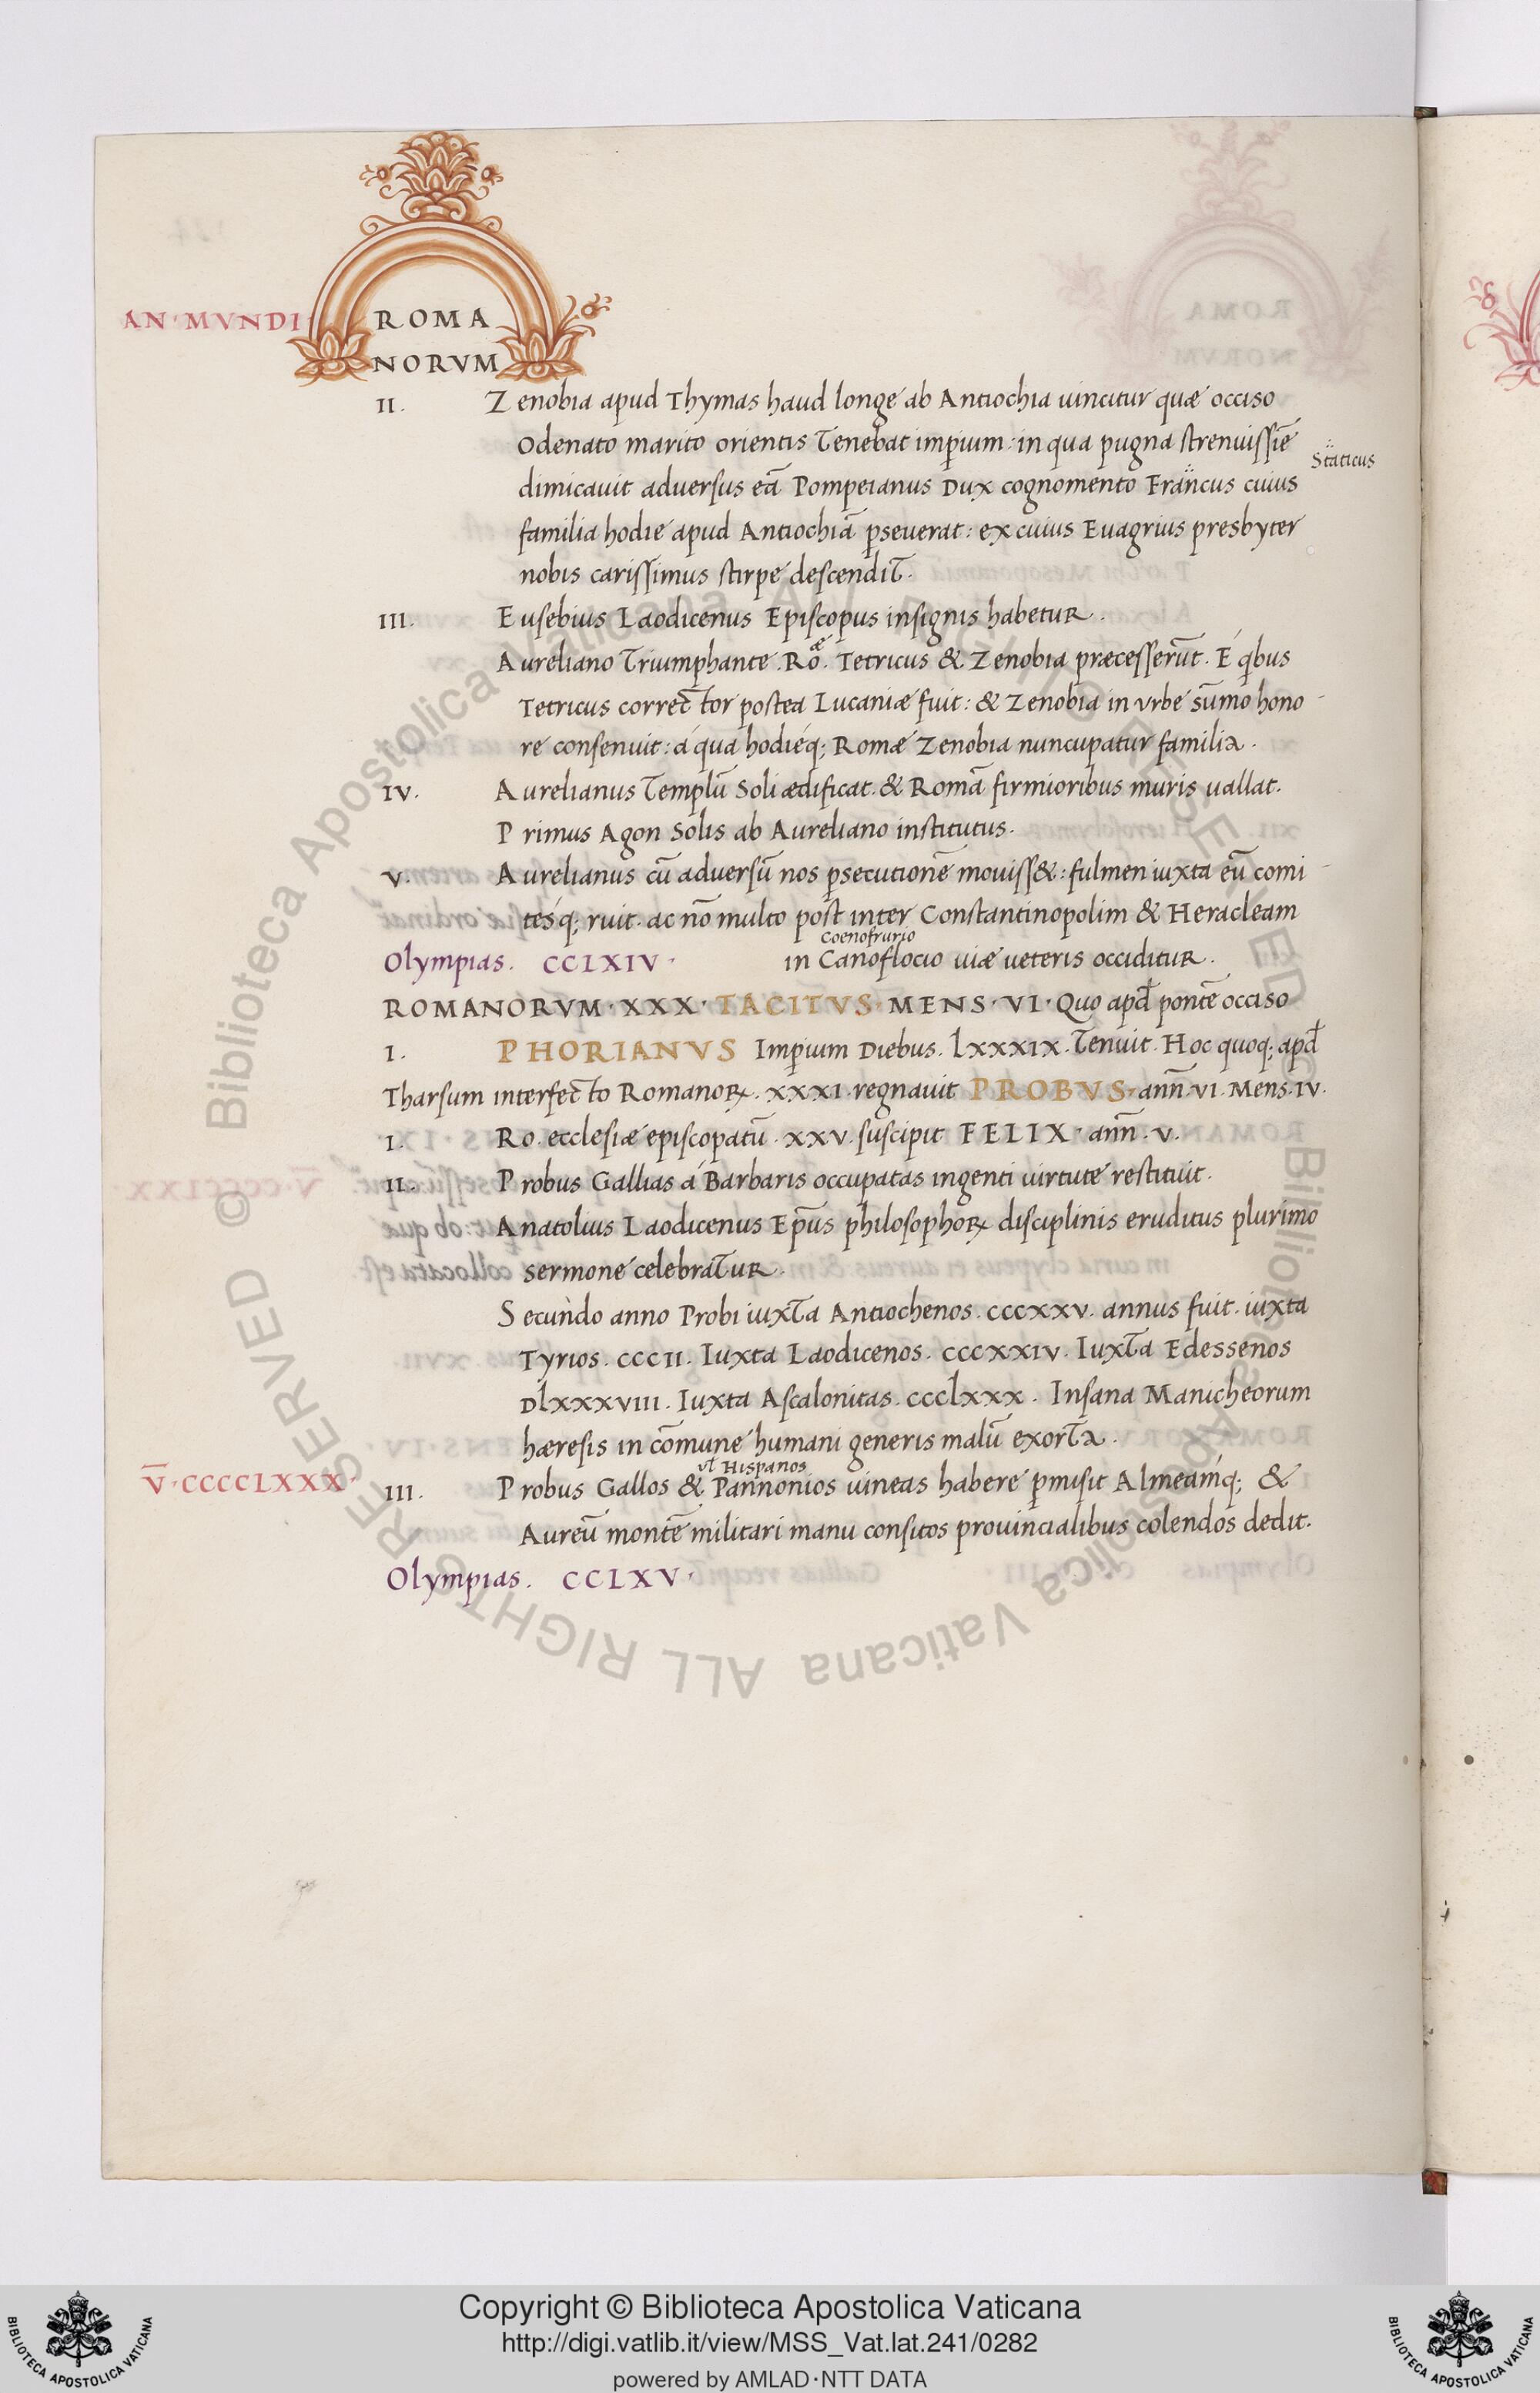 AN·MVNDI ROMA
NORVM
II. Zenobia apud Thymas haud longe ab Antiochia uincitur quæ occiso
Odenato marito orientis Tenebat imp̄ium: in qua pugna strenuissīe
Staticus
dimicauit aduersus eā Pompeianus Dux cognomento Francus cuius
familia hodie apud Antiochiā p̄seuerat: ex cuius Euagrius presbyter
nobis carissimus stirpe descendit.
III. Eusebius Laodicenus Episcopus insignis habetur.
æ
Aureliano Triumphante. Ro. Tetricus & Zenobia præcesserūt. E qbus
Tetricus corrector postea Lucaniæ fuit: & Zenobia in vrbe sūmo hono-
re consenuit: á qua hodieq; Romæ Zenobia nuncupatur familia.
IV. Aurelianus Templū Soli ædificat. & Romā firmioribus muris uallat.
Primus Agon Solis ab Aureliano institutus.
V. Aurelianus cū aduersū nos p̄secutionē mouiss&: fulmen iuxta eū comi-
tesq; ruit. ac nō multo post inter Constantinopolim & Heracleam
Coenofrurio
Olympias. CCLXIV. in Canoflocio uiæ ueteris occiditur.
ROMANORVM·XXX·TACITVS·MENS·VI·Quo apd̄ pontē occiso
I. PHORIANVS Imp̄ium Diebus. lxxxix. Tenuit. Hoc quoq; apd̄
Tharsum interfecto Romanoꝝ. xxxi. regnauit PROBVS·anñ. vi. Mens. iv.
I. Ro. ecclesiæ episcopatū. xxv. suscipit FELIX· anñ. v.
II. Probus Gallias á Barbaris occupatas ingenti uirtute restituit.
Anatolius Laodicenus Ep̄us philosophoꝝ disciplinis eruditus plurimo
sermone celebratur.
Secundo anno Probi iuxta Antiochenos. cccxxv. annus fuit. iuxta
Tyrios. cccii. Iuxta Laodicenos. cccxxiv. Iuxta Edessenos
Dlxxxviii. Iuxta Ascalonitas. ccclxxx. Insana Manicheorum
hæresis in cōmune humani generis malū exorta.
vl̄ Hispanos
V̄·CCCCLXXX· III. Probus Gallos & Pannonios uineas habere p̄misit Almeamq; &
Aureū montē militari manu consitos prouincialibus colendos dedit.
Olympias. CCLXV.
© Biblioteca Apostolica Vaticana ALL RIGHTS RESERVED
Copyright © Biblioteca Apostolica Vaticana
http://digi.vatlib.it/view/MSS_Vat.lat.241/0282
powered by AMLAD·NTT DATA
BIBLIOTECA APOSTOLICA VATICANA
BIBLIOTECA APOSTOLICA VATICANA